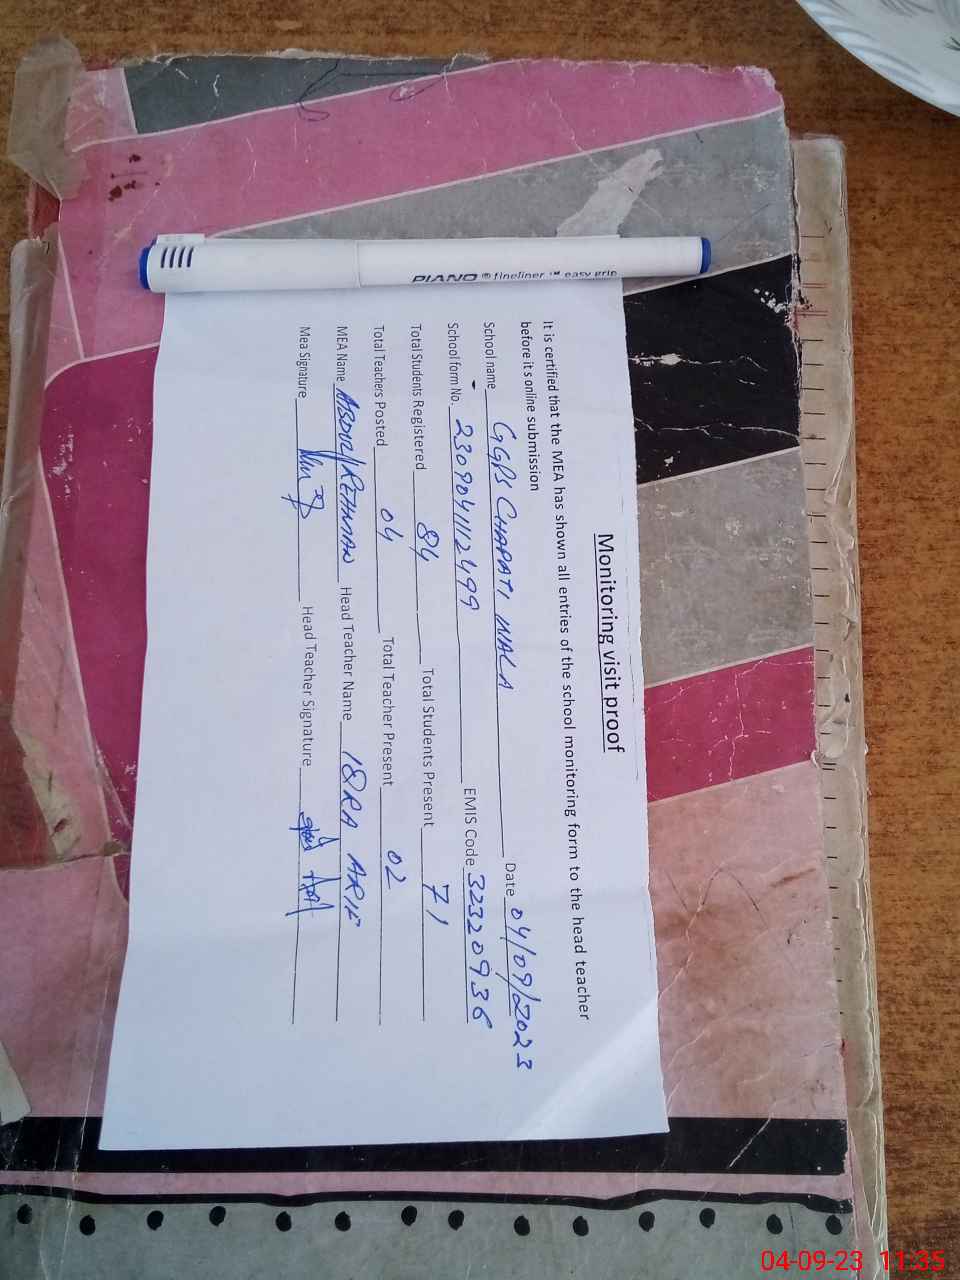 PIANO ® fineliner ™ easy grip
Monitoring visit proof
It is certified that the MEA has shown all entries of the school monitoring form to the head teacher
before it s online submission
School name GGPS CHAPATI WALA Date 04/09/2023
School form No. 230904112499 EMIS Code 32320936
Total Students Registered 84 Total Students Present 71
Total Teachers Posted 04 Total Teacher Present 02
MEA Name ABDUL REHMAN Head Teacher Name IQRA ARIF
Mea Signature Head Teacher Signature
04-09-23 11:35